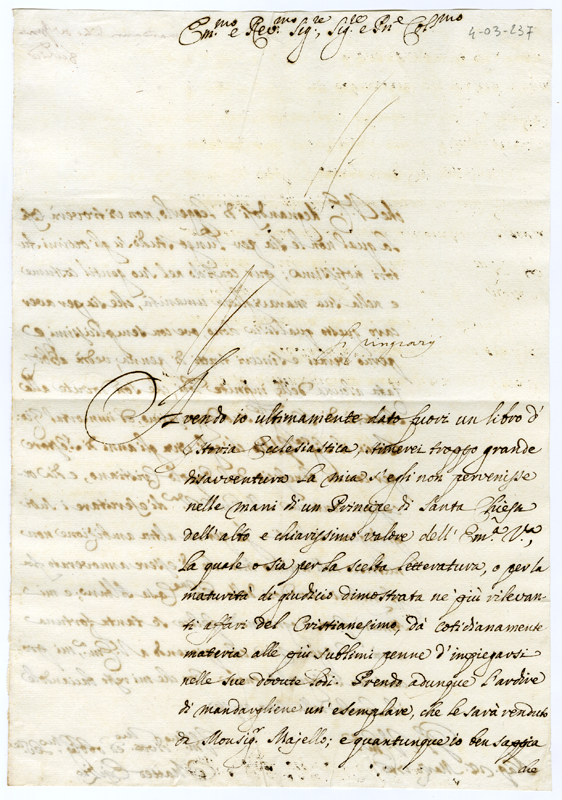 Em.mo e Rev.mo Sig.re, Sig.re e Pne Col.mo
4-03-237
si ringrazj
Avendo io ultimamente dato fuori un libro d'
Istoria Ecclesiastica, stimerei troppo grande
disavventura la mia s'egli non pervenisse
nelle mani di un Principe di Santa Chiesa
dell' alto e chiarissimo valore dell' Em.a V.a,
la quale o sia per la scelta letteratura, o per la
maturità di giudicio dimostrata ne' più rilevan-
ti affari del Cristianesimo, dà cotidianamente
materia alle più sublimi penne d'impiegarsi
nelle sue dovute lodi. Prendo adunque l'ardire
di mandargliene un' esemplare, che le sarà renduto
da Monsig.r Majello; e quantunque io ben sappia
che